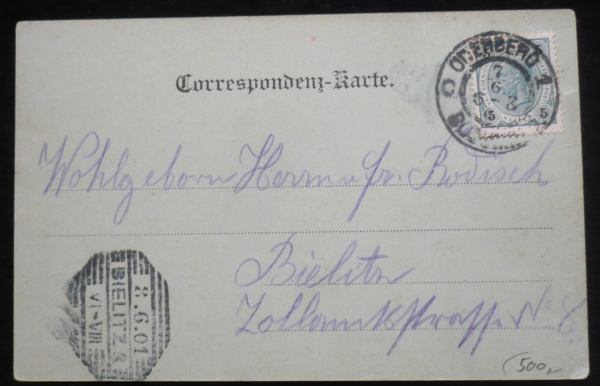 Correspondenz-Karte.
ODERBERG 1
7
6
5 5
Wohlgeborn Herrn u fr. Rodisch
Bielitz
Zollamtsstrasse No 6.
8.6.01
BIELITZ
VI-VIII
500,-